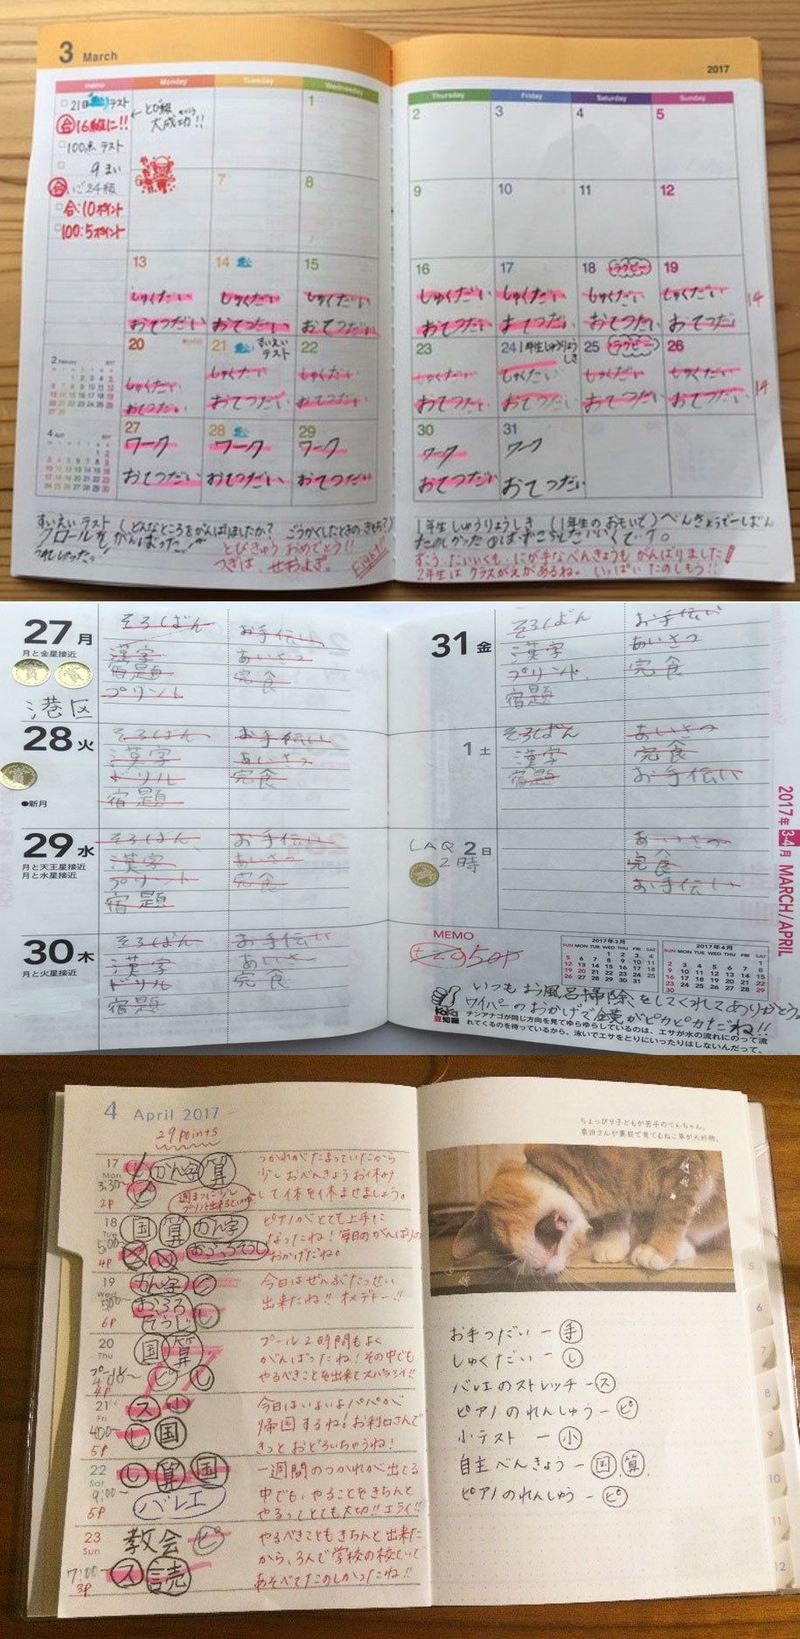 3 March
2017
memo
Monday
Tuesday
Wednesday
Thursday
Friday
Saturday
Sunday
テスト
合16級に!!
とび級
大成功!!
100点 テスト
9まい
合
24級
合:10ポイント
100:5ポイント
1
2
3
4
5
6
7
8
9
10
11
12
13
14
15
16
17
18 ラグビー
19
しゅくだい
しゅくだい
しゅくだい
しゅくだい
しゅくだい
しゅくだい
しゅくだい
おてつだい
おてつだい
おてつだい
おてつだい
おてつだい
おてつだい
おてつだい
14
20
21 すいえいテスト
22
23
24 1年生しゅうりょうしき
25 ラグビー
26
しゅくだい
しゅくだい
しゅくだい
しゅくだい
しゅくだい
しゅくだい
しゅくだい
おてつだい
おてつだい
おてつだい
おてつだい
おてつだい
おてつだい
おてつだい
14
27
28
29
30
31
ワーク
ワーク
ワーク
ワーク
ワーク
おてつだい
おてつだい
おてつだい
おてつだい
おてつだい
2 February 2017
4 April 2017
すいえい テスト (どんなところをがんばりましたか? ごうかくしたときのきもち?)
クロールを がんばった
うれしかった。
とびきゅう おめでとう!!
つぎは、せおよぎ。
Fight!!
1年生 しゅうりょうしき (1年生のおもいで)
たのしかった
ずこう たいいくも、にが手なべんきょうも がんばりました!
2年生は クラスがえがあるね。いっぱい たのしもう!!
27 月
月と金星接近
港区
そろばん
お手伝い
漢字
あいさつ
宿題
完食
プリント
28 火
●新月
そろばん
お手伝い
漢字
あいさつ
ドリル
完食
宿題
29 水
月と天王星接近
月と水星接近
そろばん
お手伝い
漢字
あいさつ
プリント
完食
宿題
30 木
月と火星接近
そろばん
お手伝い
漢字
あいさつ
ドリル
完食
宿題
31 金
そろばん
お手伝い
漢字
あいさつ
プリント
完食
宿題
1 土
そろばん
あいさつ
漢字
完食
宿題
お手伝い
LAQ
2時
2 日
あいさつ
完食
お手伝い
2017年 3-4月 MARCH/APRIL
MEMO
2017年3月
SUN MON TUE WED THU FRI SAT
2017年4月
SUN MON TUE WED THU FRI SAT
いつもお風呂掃除をしてくれてありがとう。
ワイパーのおかげで鏡がピカピカだね!!
豆知識
チンアナゴが同じ方向を見てゆらゆらしているのは、エサが水の流れにのって流
れてくるのを待っているから。泳いでエサをとりにいったりはしないんだって。
4 April 2017
29 points
17 Mon
3:30~
2P
し かん字 算
ピ
週まつに少しプリント出来るといいね
つかれがたまっていたから
少しおべんきょうお休み
して体を休ませましょう。
18 Tue
5:00~
4P
国 算 かん字
おふろそうじ
ピアノがとても上手に
なったね!毎日のがんばりの
おかげだね。
19 Wed
5:00~
6P
かん字 ピ
おふろ
そうじ し
今日はぜんぶたっせい
出来たね!! オメデトー!!
20 Thu
プール
4P
国 算
ピ し
プール2時間もよく
がんばったね!その中でも
やるべきことを出来てスバラシイ!!
21 Fri
4:00~
5P
ス 小
し 国
今日はいよいよパパが
帰国するね!お利口さんで
きっとおどろいちゃうね!
22 Sat
9:00~
5P
し 算 国
バレエ
一週間のつかれが出てる
中でも、やることをきちんと
やるってとても大切!!エライ!!
23 Sun
7:00~
3P
教会 ピ
ス 読
やるべきこともきちんと出来た
から、3人で学校の校ていで
あそべてたのしかったね!!
ちょっぴり子どもが苦手のてんちゃん。
お手つだい ー 手
しゅくだい ー し
バレエのストレッチ ー ス
ピアノのれんしゅう ー ピ
小テスト ー 小
自主べんきょう ー 国 算
ピアノのれんしゅう ー ピ
5
6
7
8
9
10
11
12